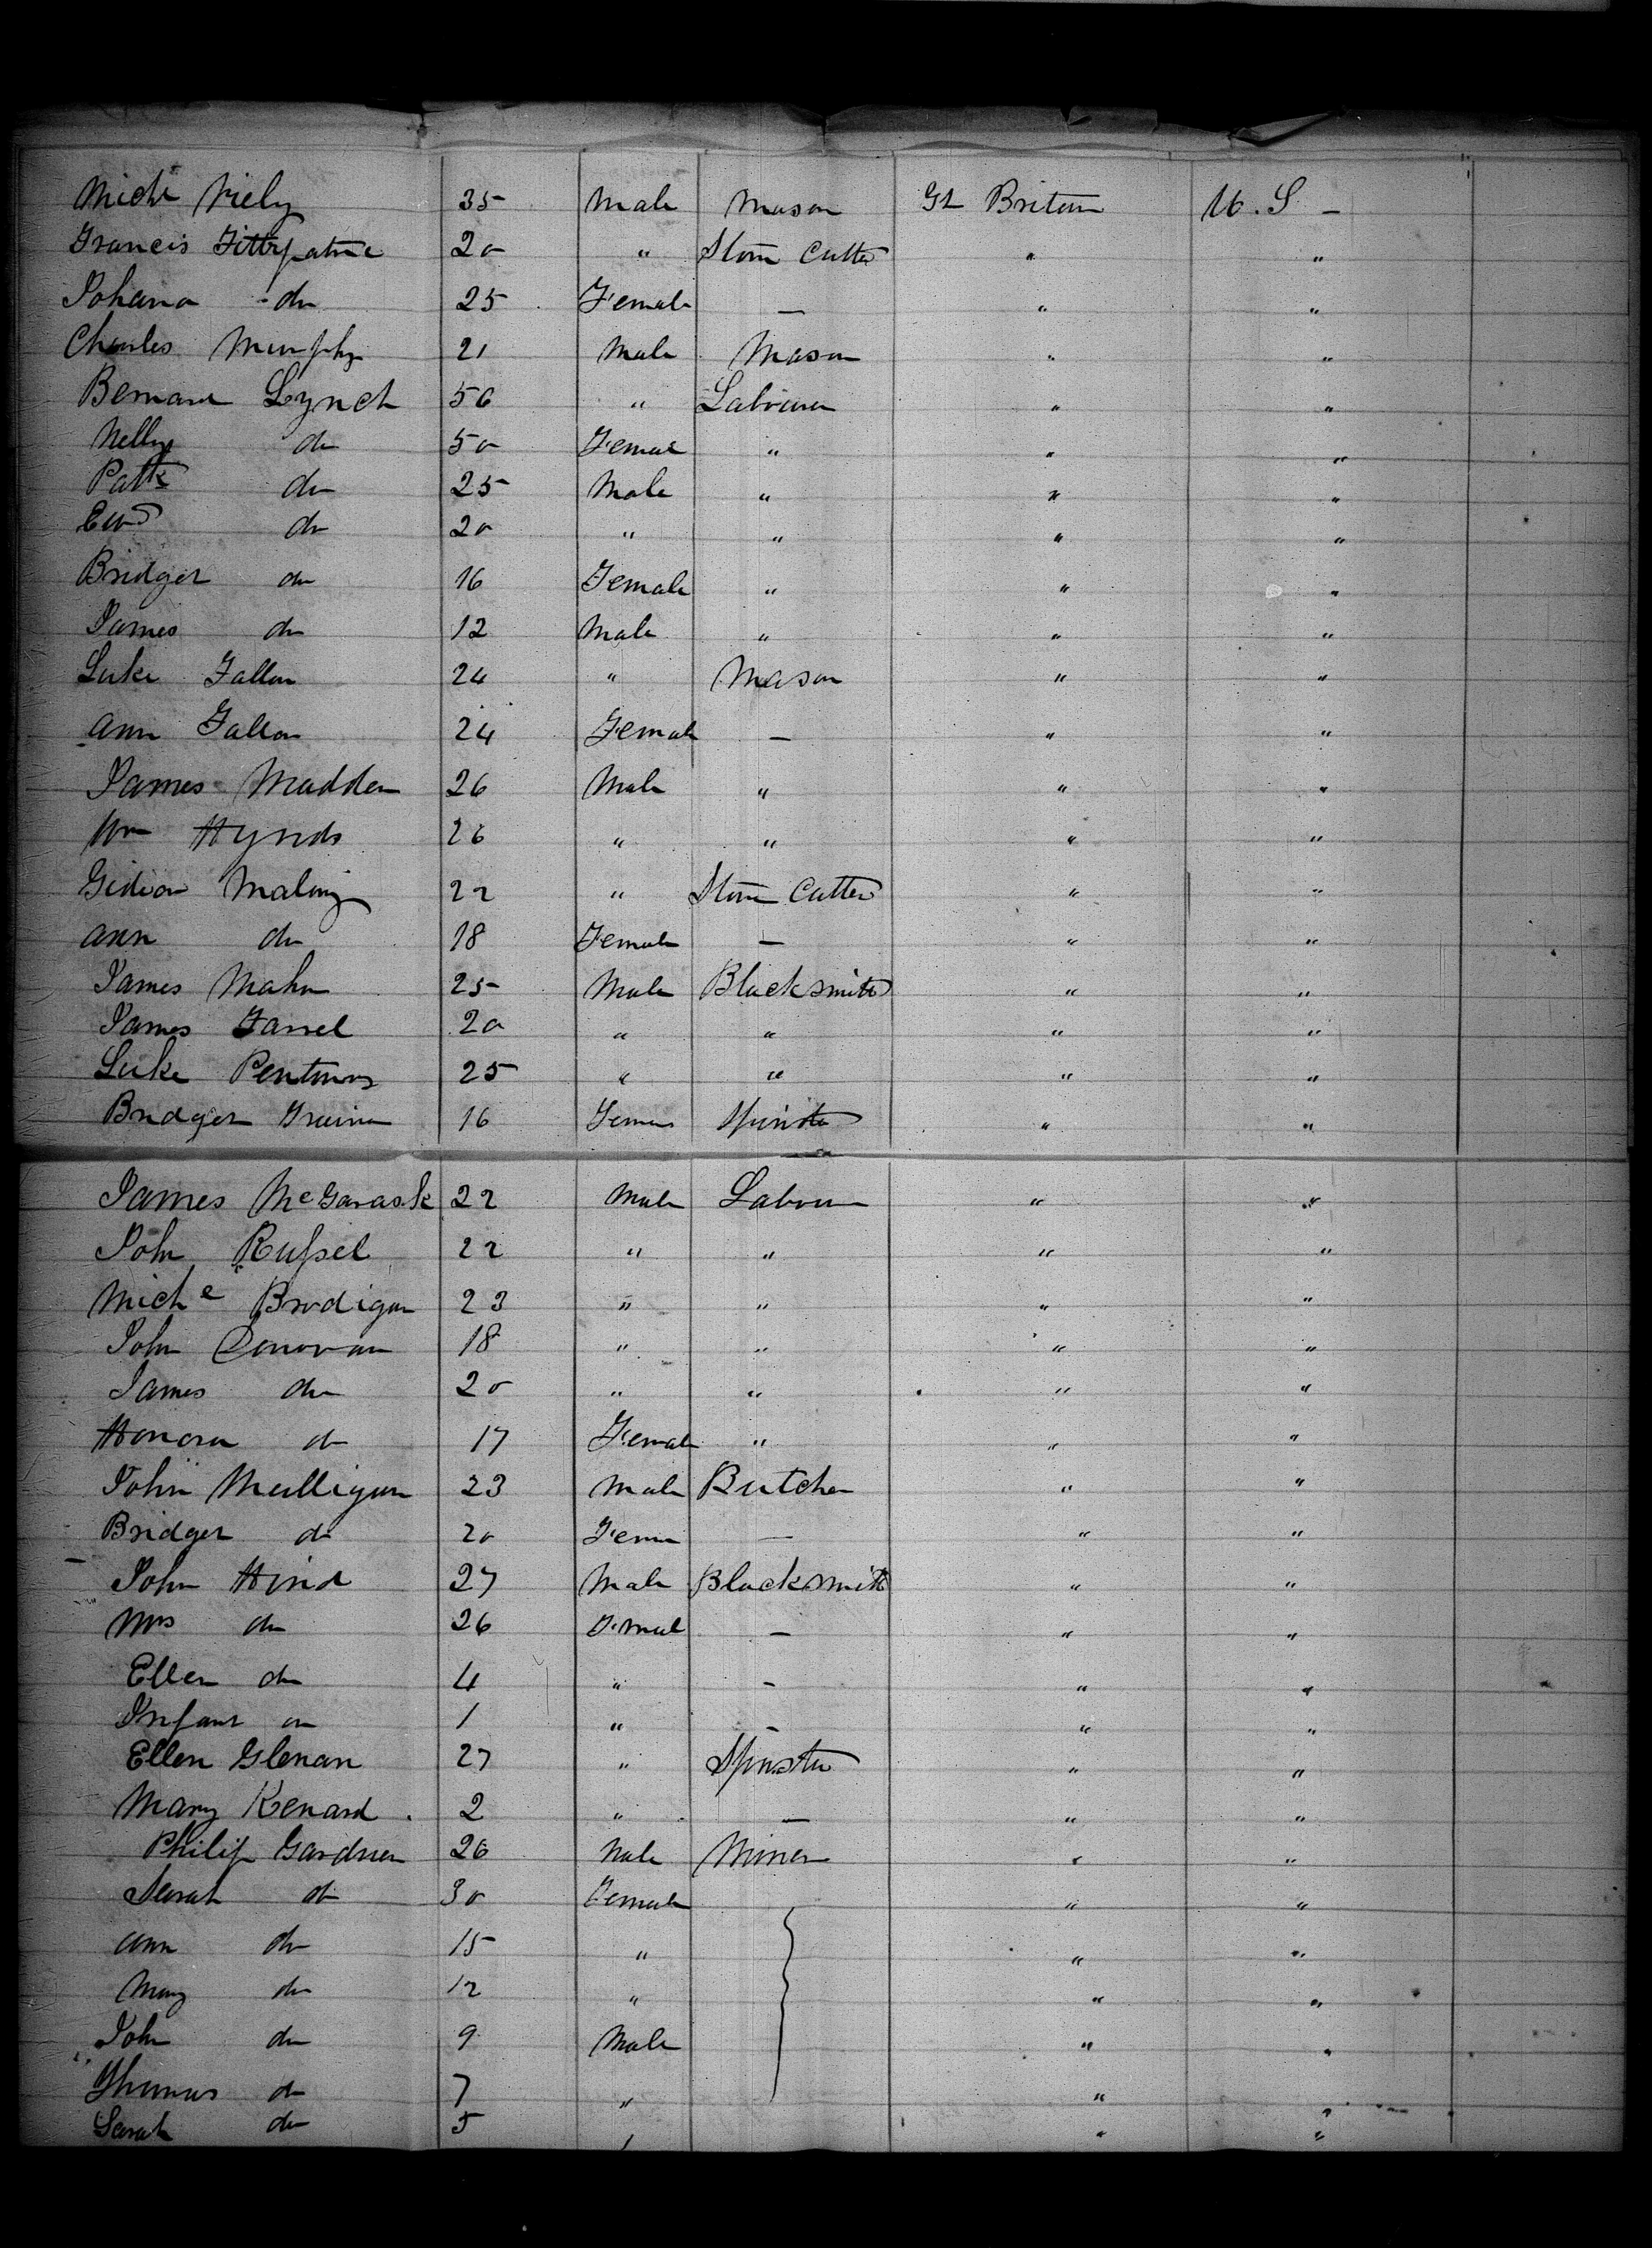 Michl Riely 35 Male Mason Gt Britain U.S -
Francis Fittzpatric 20 " Stone Cutter " "
Johana do 25 Female — " "
Charles Murphy 21 Male Mason " "
Bernard Lynch 56 " Labourer " "
Nelly do 50 Female " " "
Patk do 25 Male " " "
Edwd do 20 " " " "
Bridget do 16 Female " " "
James do 12 Male " " "
Luke Fallon 24 " Mason " "
Ann Fallon 24 Female — " "
James Madden 26 Male " " "
Wm Hynds 26 " " " "
Gideon 22 " Stone Cutter " "
Ann do 18 Female — " "
James Mahn 25 Male Blacksmith " "
James Farrel 20 " " " "
Luke 25 " " " "
Bridget 16 Female Spinster " "
James McGavask 22 Male Labour " "
John Russel 22 " " " "
Miche Brodigan 23 " " " "
John Donovan 18 " " " "
James do 20 " " " "
Honora do 17 Female " " "
John Mulligan 23 Male Butcher " "
Bridget do 20 Fema — " "
John Hind 27 Male Blacksmith " "
Mrs do 26 Femal — " "
Ellen do 4 " — " "
Infant do 1 " — " "
Ellen Glenan 27 " Spinster " "
Mary Kenard 2 " — " "
Philip Gardner 26 Male Miner " "
Sarah do 30 Female " "
Ann do 15 " " "
Mary do 12 " " "
John do 9 Male " "
Thomas do 7 " " "
Sarah do 5 " " "